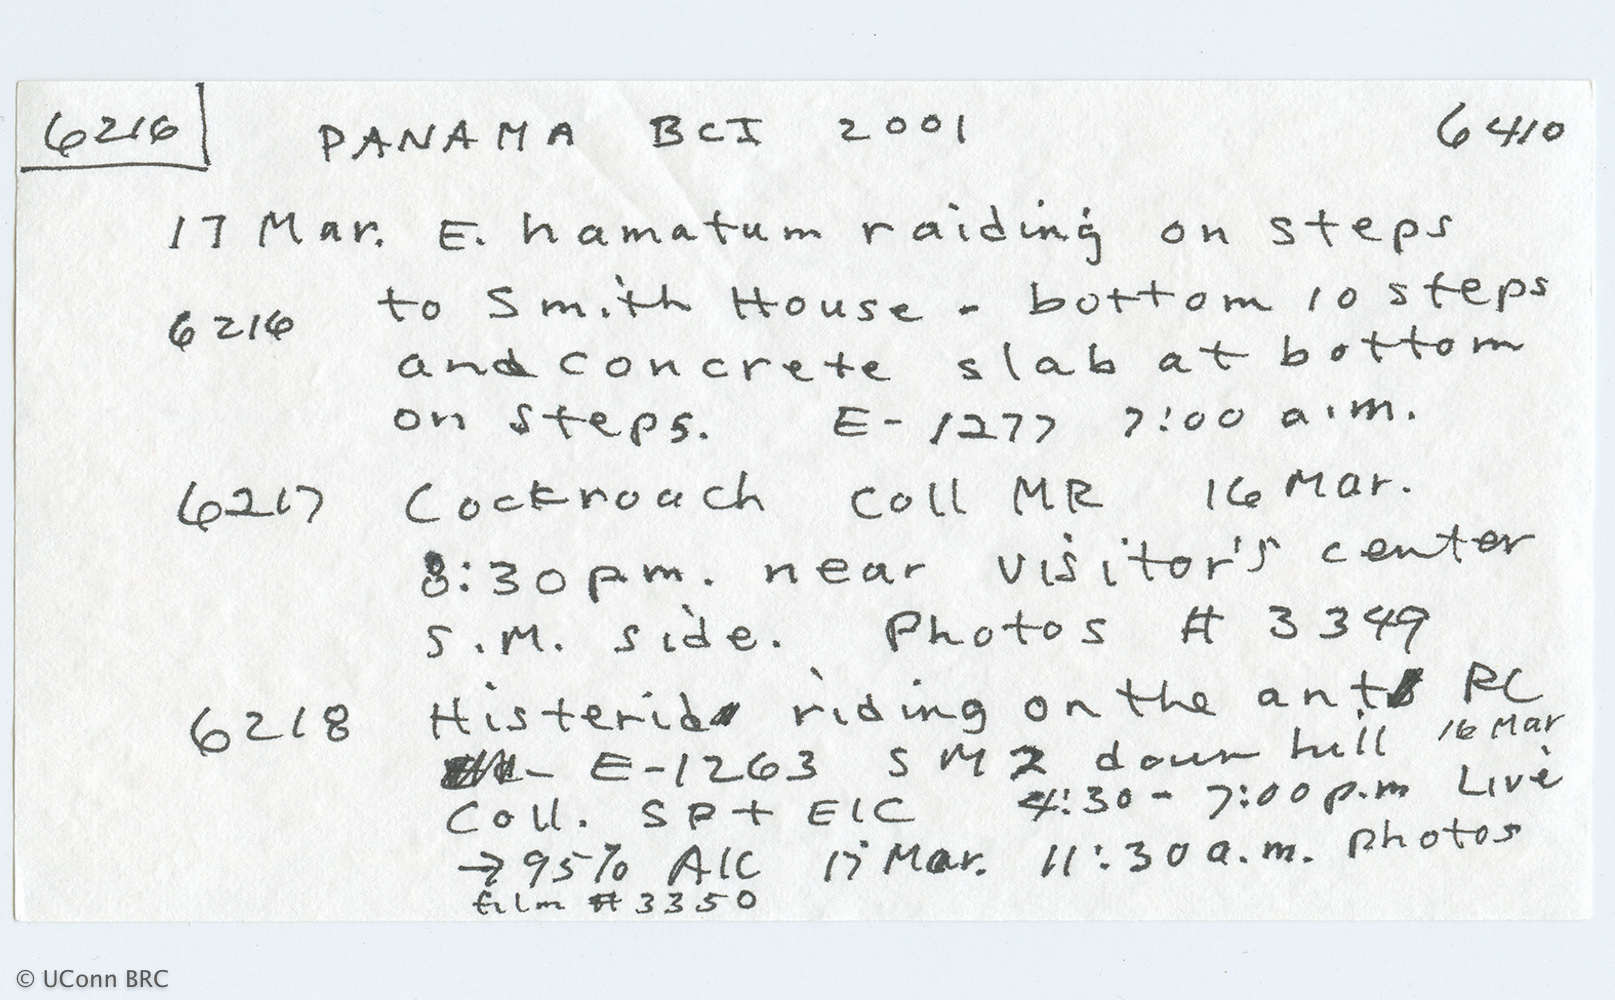 6216 PANAMA BCI 2001 6410
17 Mar. E. hamatum raiding on steps
6216 to Smith House - bottom 10 steps
and concrete slab at bottom
on steps. E-1277 7:00 a.m.
6217 Cockroach coll MR 16 Mar.
8:30 p.m. near visitor's center
S.M. side. Photos # 3349
6218 Histerid riding on the ant RC
- E-1263 SM2 down hill 16 Mar
Coll. SP + EIC 4:30 - 7:00 p.m Live
→ 95% AlC 17 Mar. 11:30 a.m. photos
film # 3350
© UConn BRC